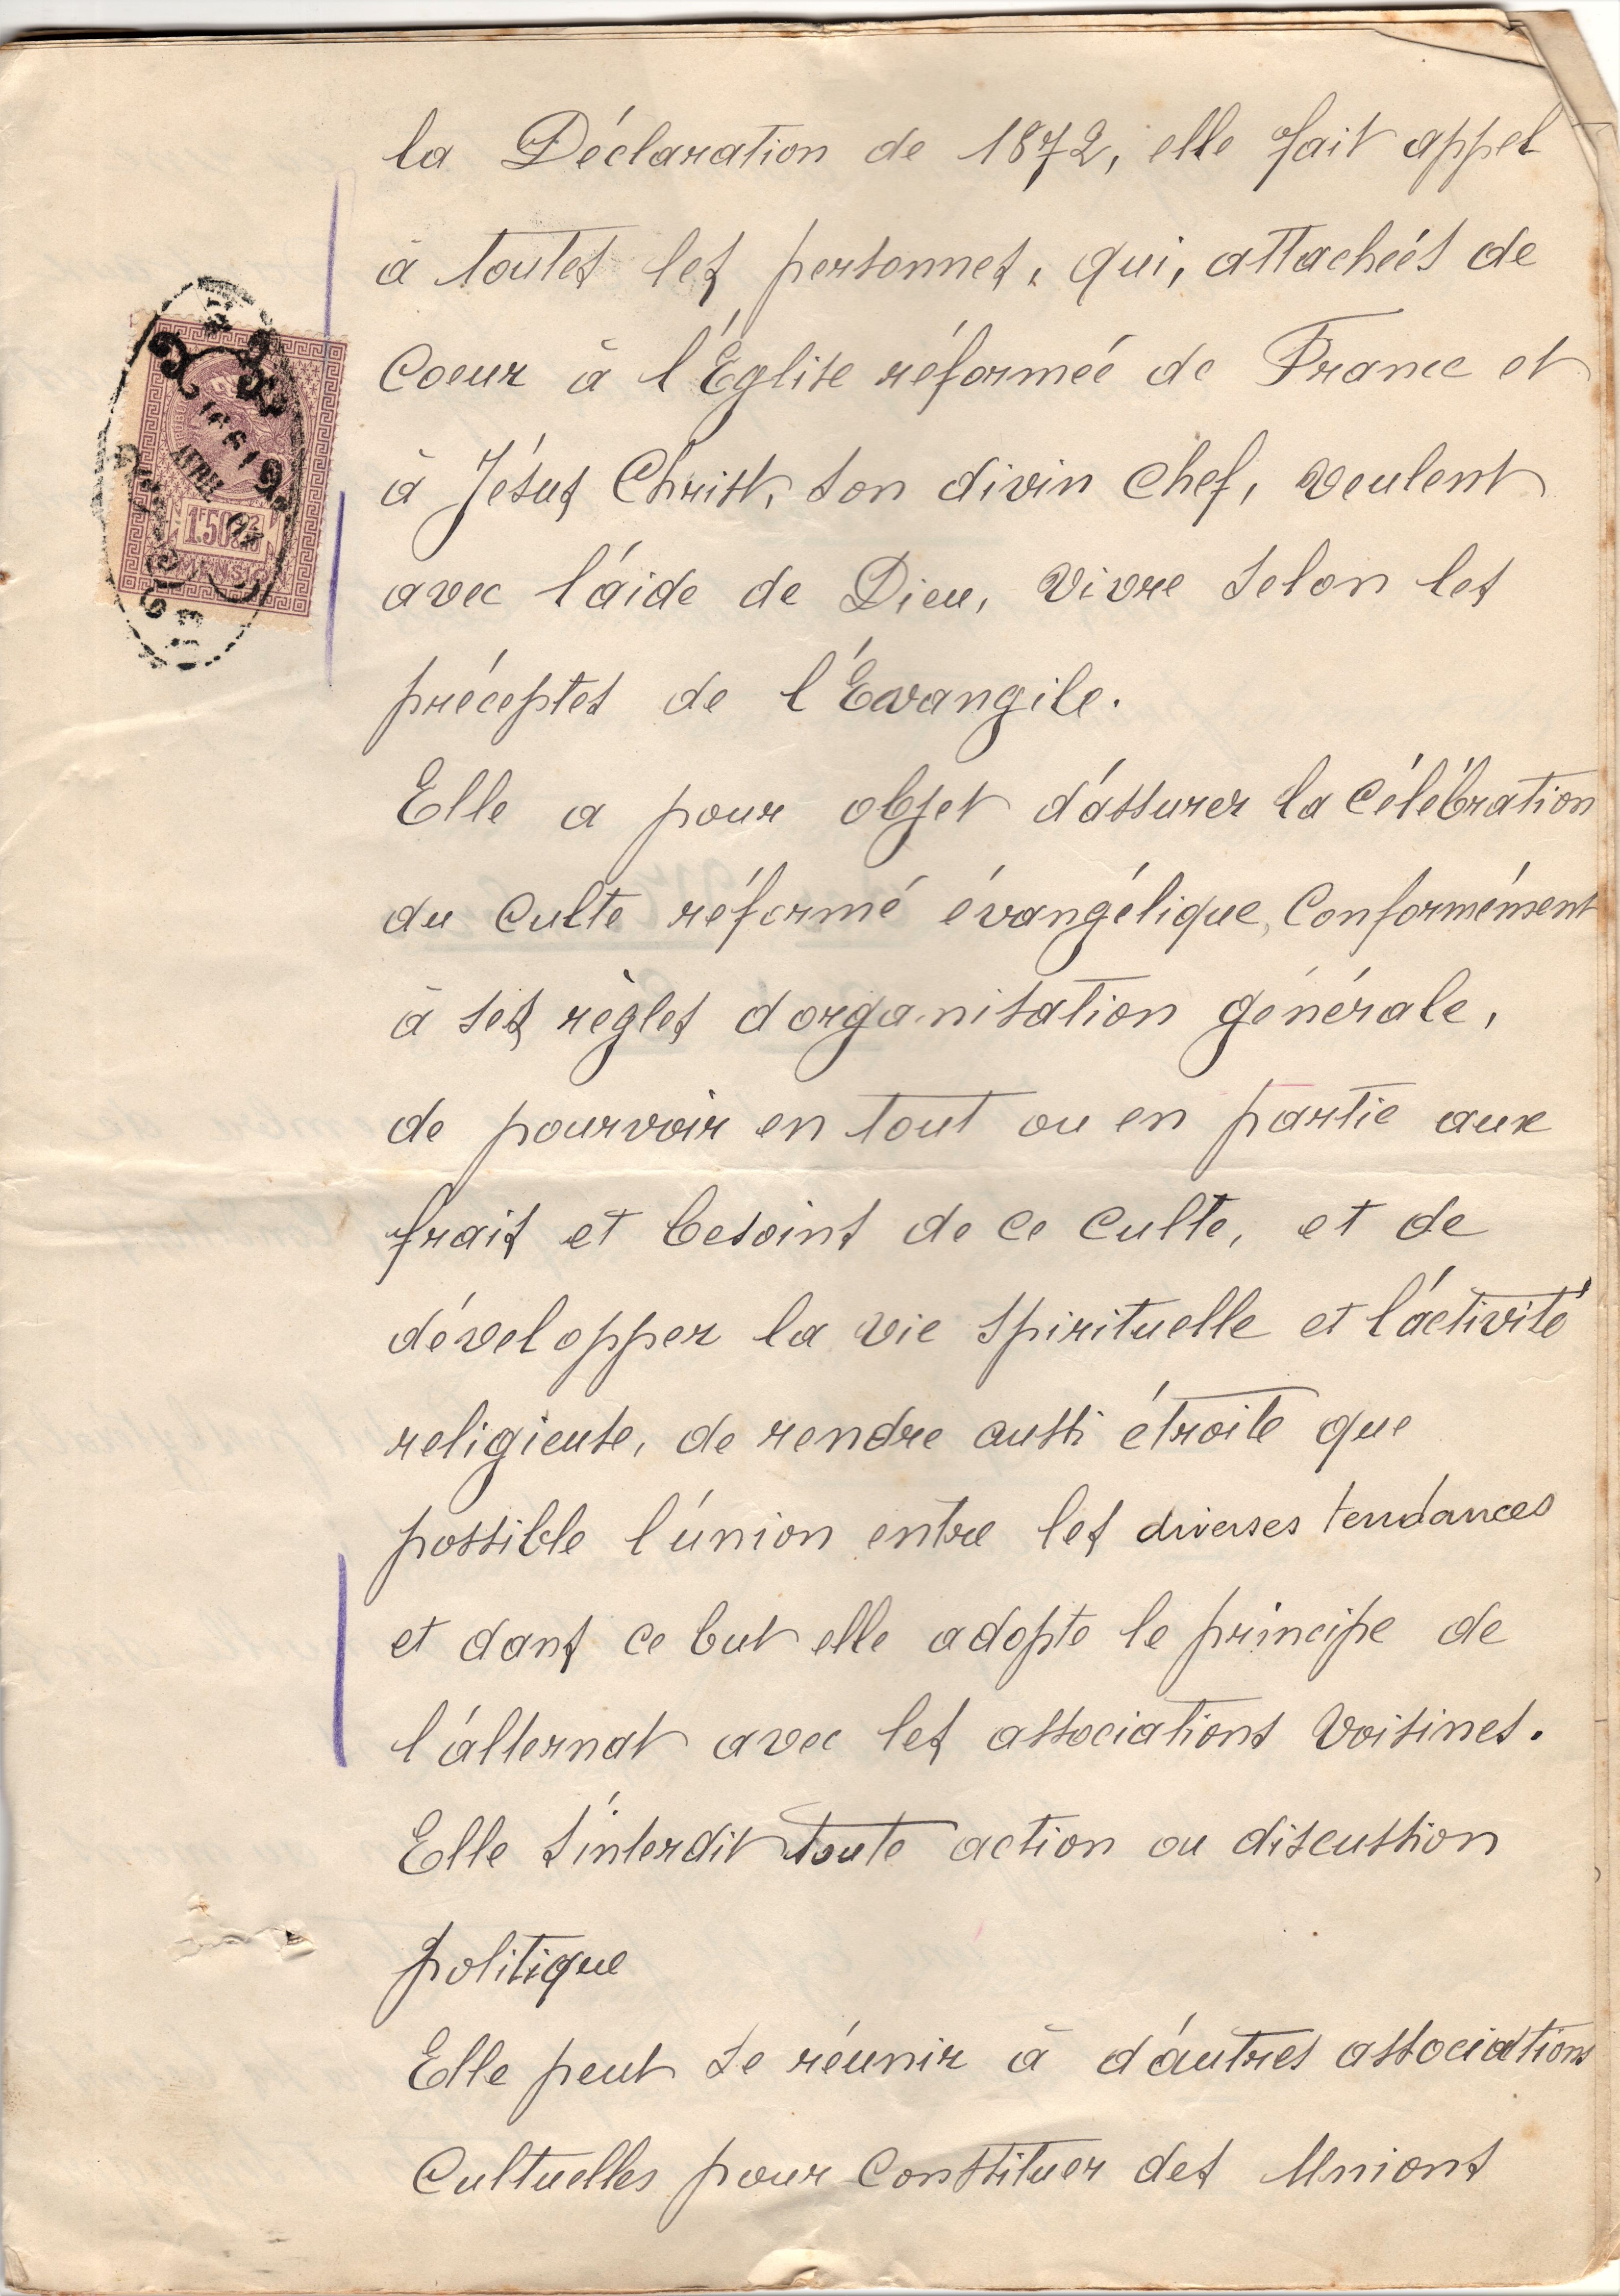 la Déclaration de 1872, elle fait appel
à toutes les personnes, qui, attachées de
coeur à l'Église réformée de France et
à Jésus Christ, son divin chef, veulent
avec l'aide de Dieu, vivre selon les
préceptes de l'Évangile.
Elle a pour objet d'assurer la célébration
du culte réformé évangélique, conformément
à ses règles d'organisation générale,
de pourvoir en tout ou en partie aux
frais et besoins de ce culte, et de
développer la vie spirituelle et l'activité
religieuse, de rendre aussi étroite que
possible l'union entre les diverses tendances
et dans ce but elle adopte le principe de
l'alternat avec les associations voisines.
Elle s'interdit toute action ou discussion
politique
Elle peut se réunir à d'autres associations
Cultuelles pour constituer des Unions